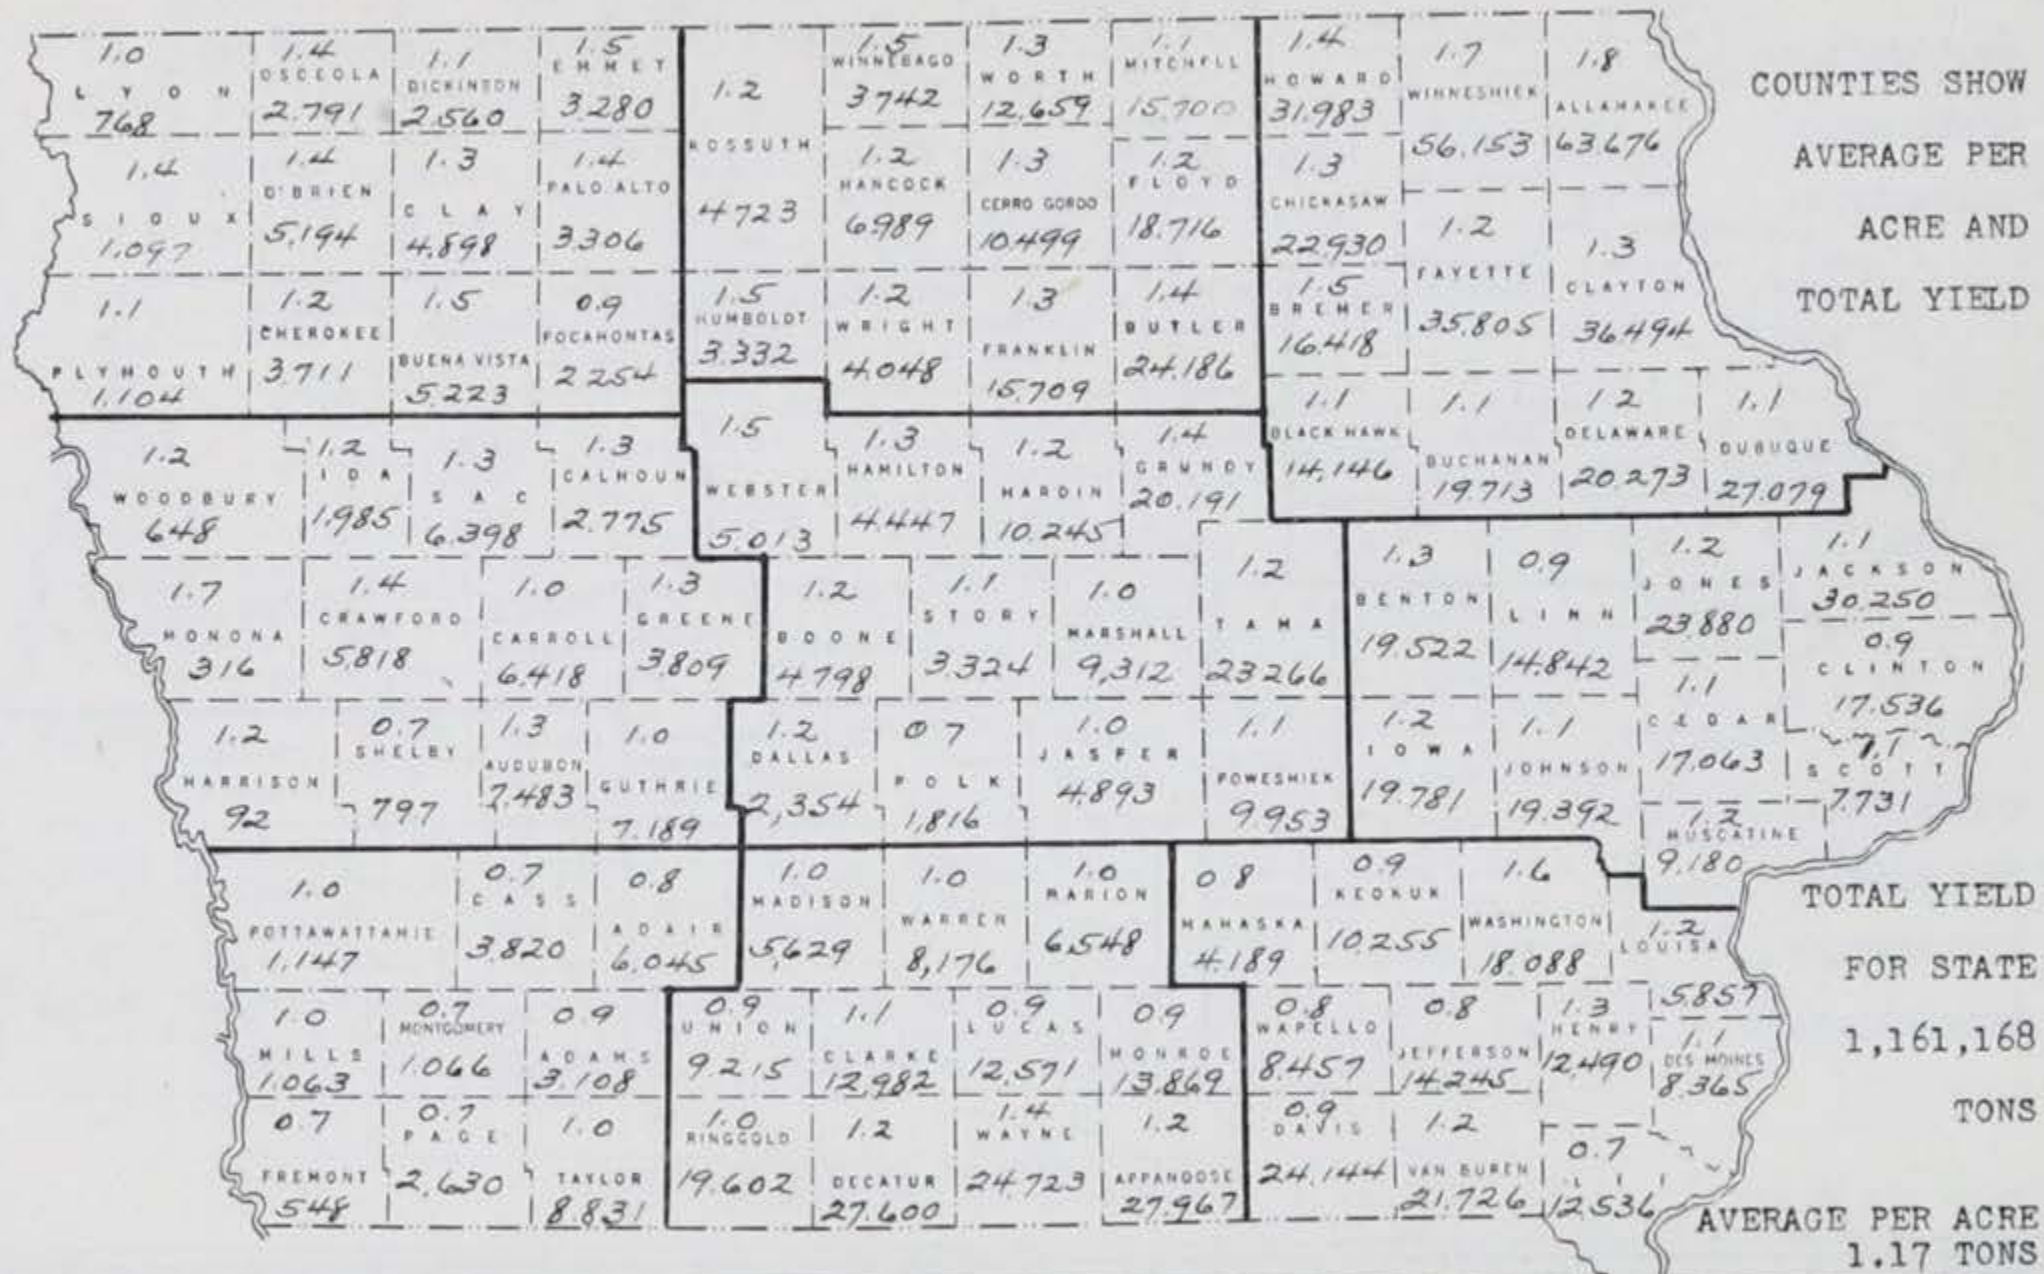 COUNTIES SHOW
AVERAGE PER
ACRE AND
TOTAL YIELD
1.0
LYON
768
1.4
OSCEOLA
2.791
1.1
DICKINSON
2.560
1.5
EMMET
3.280
1.2
KOSSUTH
4.723
1.5
WINNEBAGO
3742
1.3
WORTH
12.659
1.1
MITCHELL
15.700
1.4
HOWARD
31.983
1.7
WINNESHIEK
56.153
1.8
ALLAMAKEE
63.676
1.4
SIOUX
1.097
1.4
O'BRIEN
5.194
1.3
CLAY
4.898
1.4
PALO ALTO
3306
1.2
HANCOCK
6.989
1.3
CERRO GORDO
10.499
1.2
FLOYD
18.716
1.3
CHICKASAW
22.930
1.2
FAYETTE
35.805
1.3
CLAYTON
36.494
1.1
PLYMOUTH
1.104
1.2
CHEROKEE
3.711
1.5
BUENA VISTA
5.223
0.9
POCAHONTAS
2254
1.5
HUMBOLDT
3.332
1.2
WRIGHT
4.048
1.3
FRANKLIN
15.709
1.4
BUTLER
24.186
1.5
BREMER
16.418
1.2
WOODBURY
648
1.2
IDA
1.985
1.3
SAC
6.398
1.3
CALHOUN
2.775
1.5
WEBSTER
5.013
1.3
HAMILTON
4.447
1.2
HARDIN
10.245
1.4
GRUNDY
20.191
1.1
BLACK HAWK
14,146
1.1
BUCHANAN
19.713
1.2
DELAWARE
20.273
1.1
DUBUQUE
27.079
1.7
MONONA
316
1.4
CRAWFORD
5.818
1.0
CARROLL
6.418
1.3
GREENE
3.809
1.2
BOONE
4.798
1.1
STORY
3.324
1.0
MARSHALL
9,312
1.2
TAMA
23266
1.3
BENTON
19.522
0.9
LINN
14.842
1.2
JONES
23.880
1.1
JACKSON
30.250
0.9
CLINTON
17.536
1.2
HARRISON
92
0.7
SHELBY
797
1.3
AUDUBON
7.483
1.0
GUTHRIE
7.189
1.2
DALLAS
2,354
0.7
POLK
1,816
1.0
JASPER
4.893
1.1
POWESHIEK
9.953
1.2
IOWA
19.781
1.1
JOHNSON
19.392
1.1
CEDAR
17.063
1.1
SCOTT
7.731
1.2
MUSCATINE
9.180
1.0
POTTAWATTAMIE
1.147
0.7
CASS
3.820
0.8
ADAIR
6.045
1.0
MADISON
5,629
1.0
WARREN
8,176
1.0
MARION
6.548
0.8
MAHASKA
4.189
0.9
KEOKUK
10.255
1.6
WASHINGTON
18.088
1.2
LOUISA
5857
1.0
MILLS
1.063
0.7
MONTGOMERY
1.066
0.9
ADAMS
3.108
0.9
UNION
9.215
1.1
CLARKE
12.982
0.9
LUCAS
12.571
0.9
MONROE
13.869
0.8
WAPELLO
8.457
0.8
JEFFERSON
14.245
1.3
HENRY
12.490
1.1
DES MOINES
8.365
0.7
FREMONT
548
0.7
PAGE
2.630
1.0
TAYLOR
8.831
1.0
RINGGOLD
19.602
1.2
DECATUR
27.600
1.4
WAYNE
24.723
1.2
APPANOOSE
27.967
0.9
DAVIS
24.144
1.2
VAN BUREN
21.726
0.7
12.536
TOTAL YIELD
FOR STATE
1,161,168
TONS
AVERAGE PER ACRE
1.17 TONS